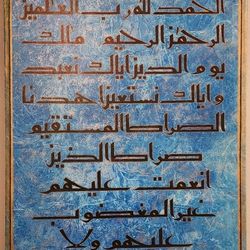 الحمد لله رب العلمين
الرحمن الرحيم ملك
يوم الدين اياك نعبد
واياك نستعين اهدنا
الصراط المستقيم
صراط الذين
انعمت عليهم
غير المغضوب
عليهم ولا